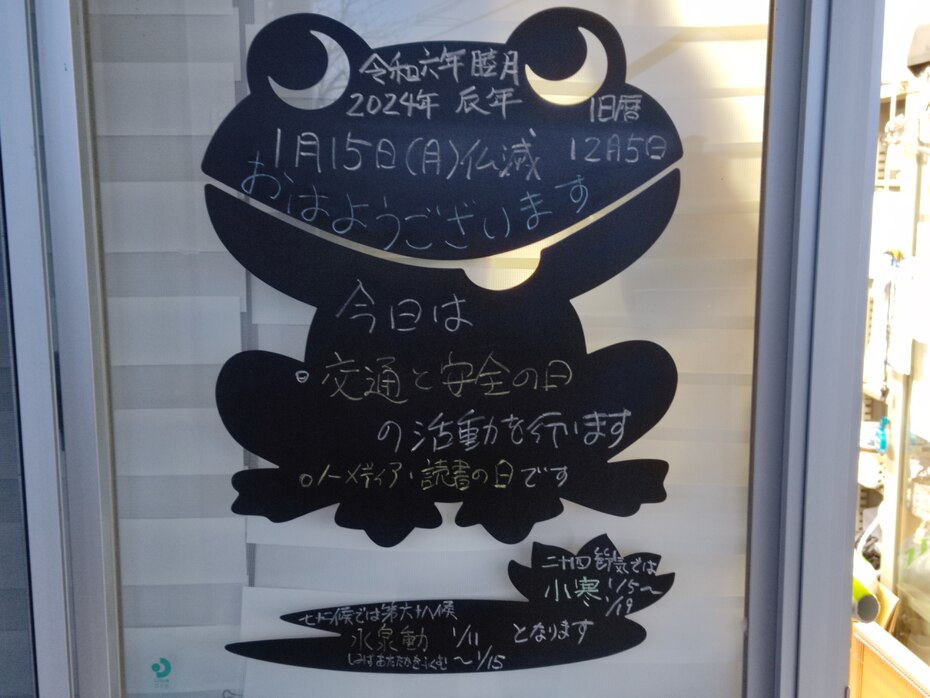 令和六年 睦月
2024年 辰年
旧暦
1月15日(月)仏滅 12月5日
おはようございます
今日は
○交通と安全の日
の活動を行います
○ノーメディア・読書の日です
二十四節気では
小寒 1/5〜
1/19
七十二候では第六十八候
水泉動 1/11
となります
しみずあたたかをふくむ 〜1/15